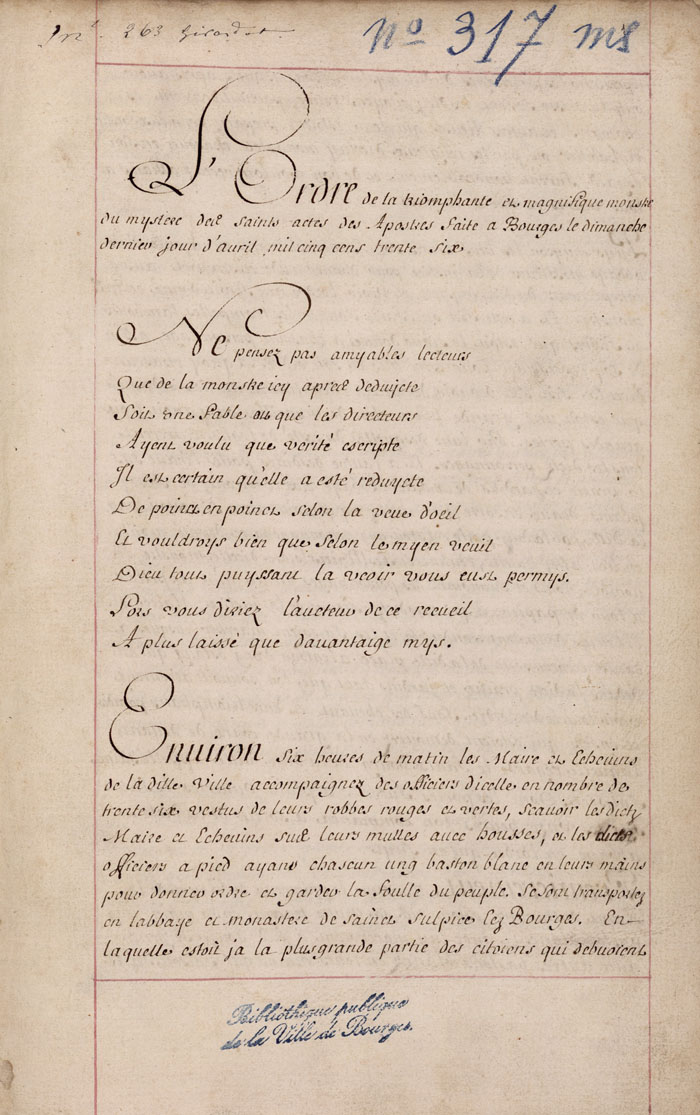 nº 263 Girardot
nº 317 ms
L'Ordre de la triomphante et magnifique monstre
du mystere des saints actes des Apostres faite a Bourges le dimanche
dernier jour d'avril mil cinq cens trente six
Ne pensez pas amyables lecteurs
Que de la monstre icy apres deduycte
Soit une fable et que les directeurs
Ayent voulu que verité escripte
Il est certain qu'elle a esté reduycte
De poinct en poinct selon la veue d'oeil
Et vouldroys bien que selon le myen veuil
Dieu tout puyssant la veoir vous eust permys.
Lors vous diriez l'aucteur de ce recueil
A plus laissé que davantaige mys.
Environ six heures de matin les Maire et Echevins
de la ditte Ville accompaignez des officiers dicelle en nombre de
trente six vestus de leurs robbes rouges et vertes, scavoir lesdictz
Maire et Echevins sus leurs mulles avec housses, et les dictz
officiers a pied ayans chascun ung baston blanc en leurs mains
pour donner ordre et garder la foulle du peuple. Se sont transportez
en labbaye et monastere de sainct sulpice lez Bourges. En-
laquelle estoit ja la plusgrande partie des citoiens qui debvoient
Bibliothèque publique
de la Ville de Bourges.